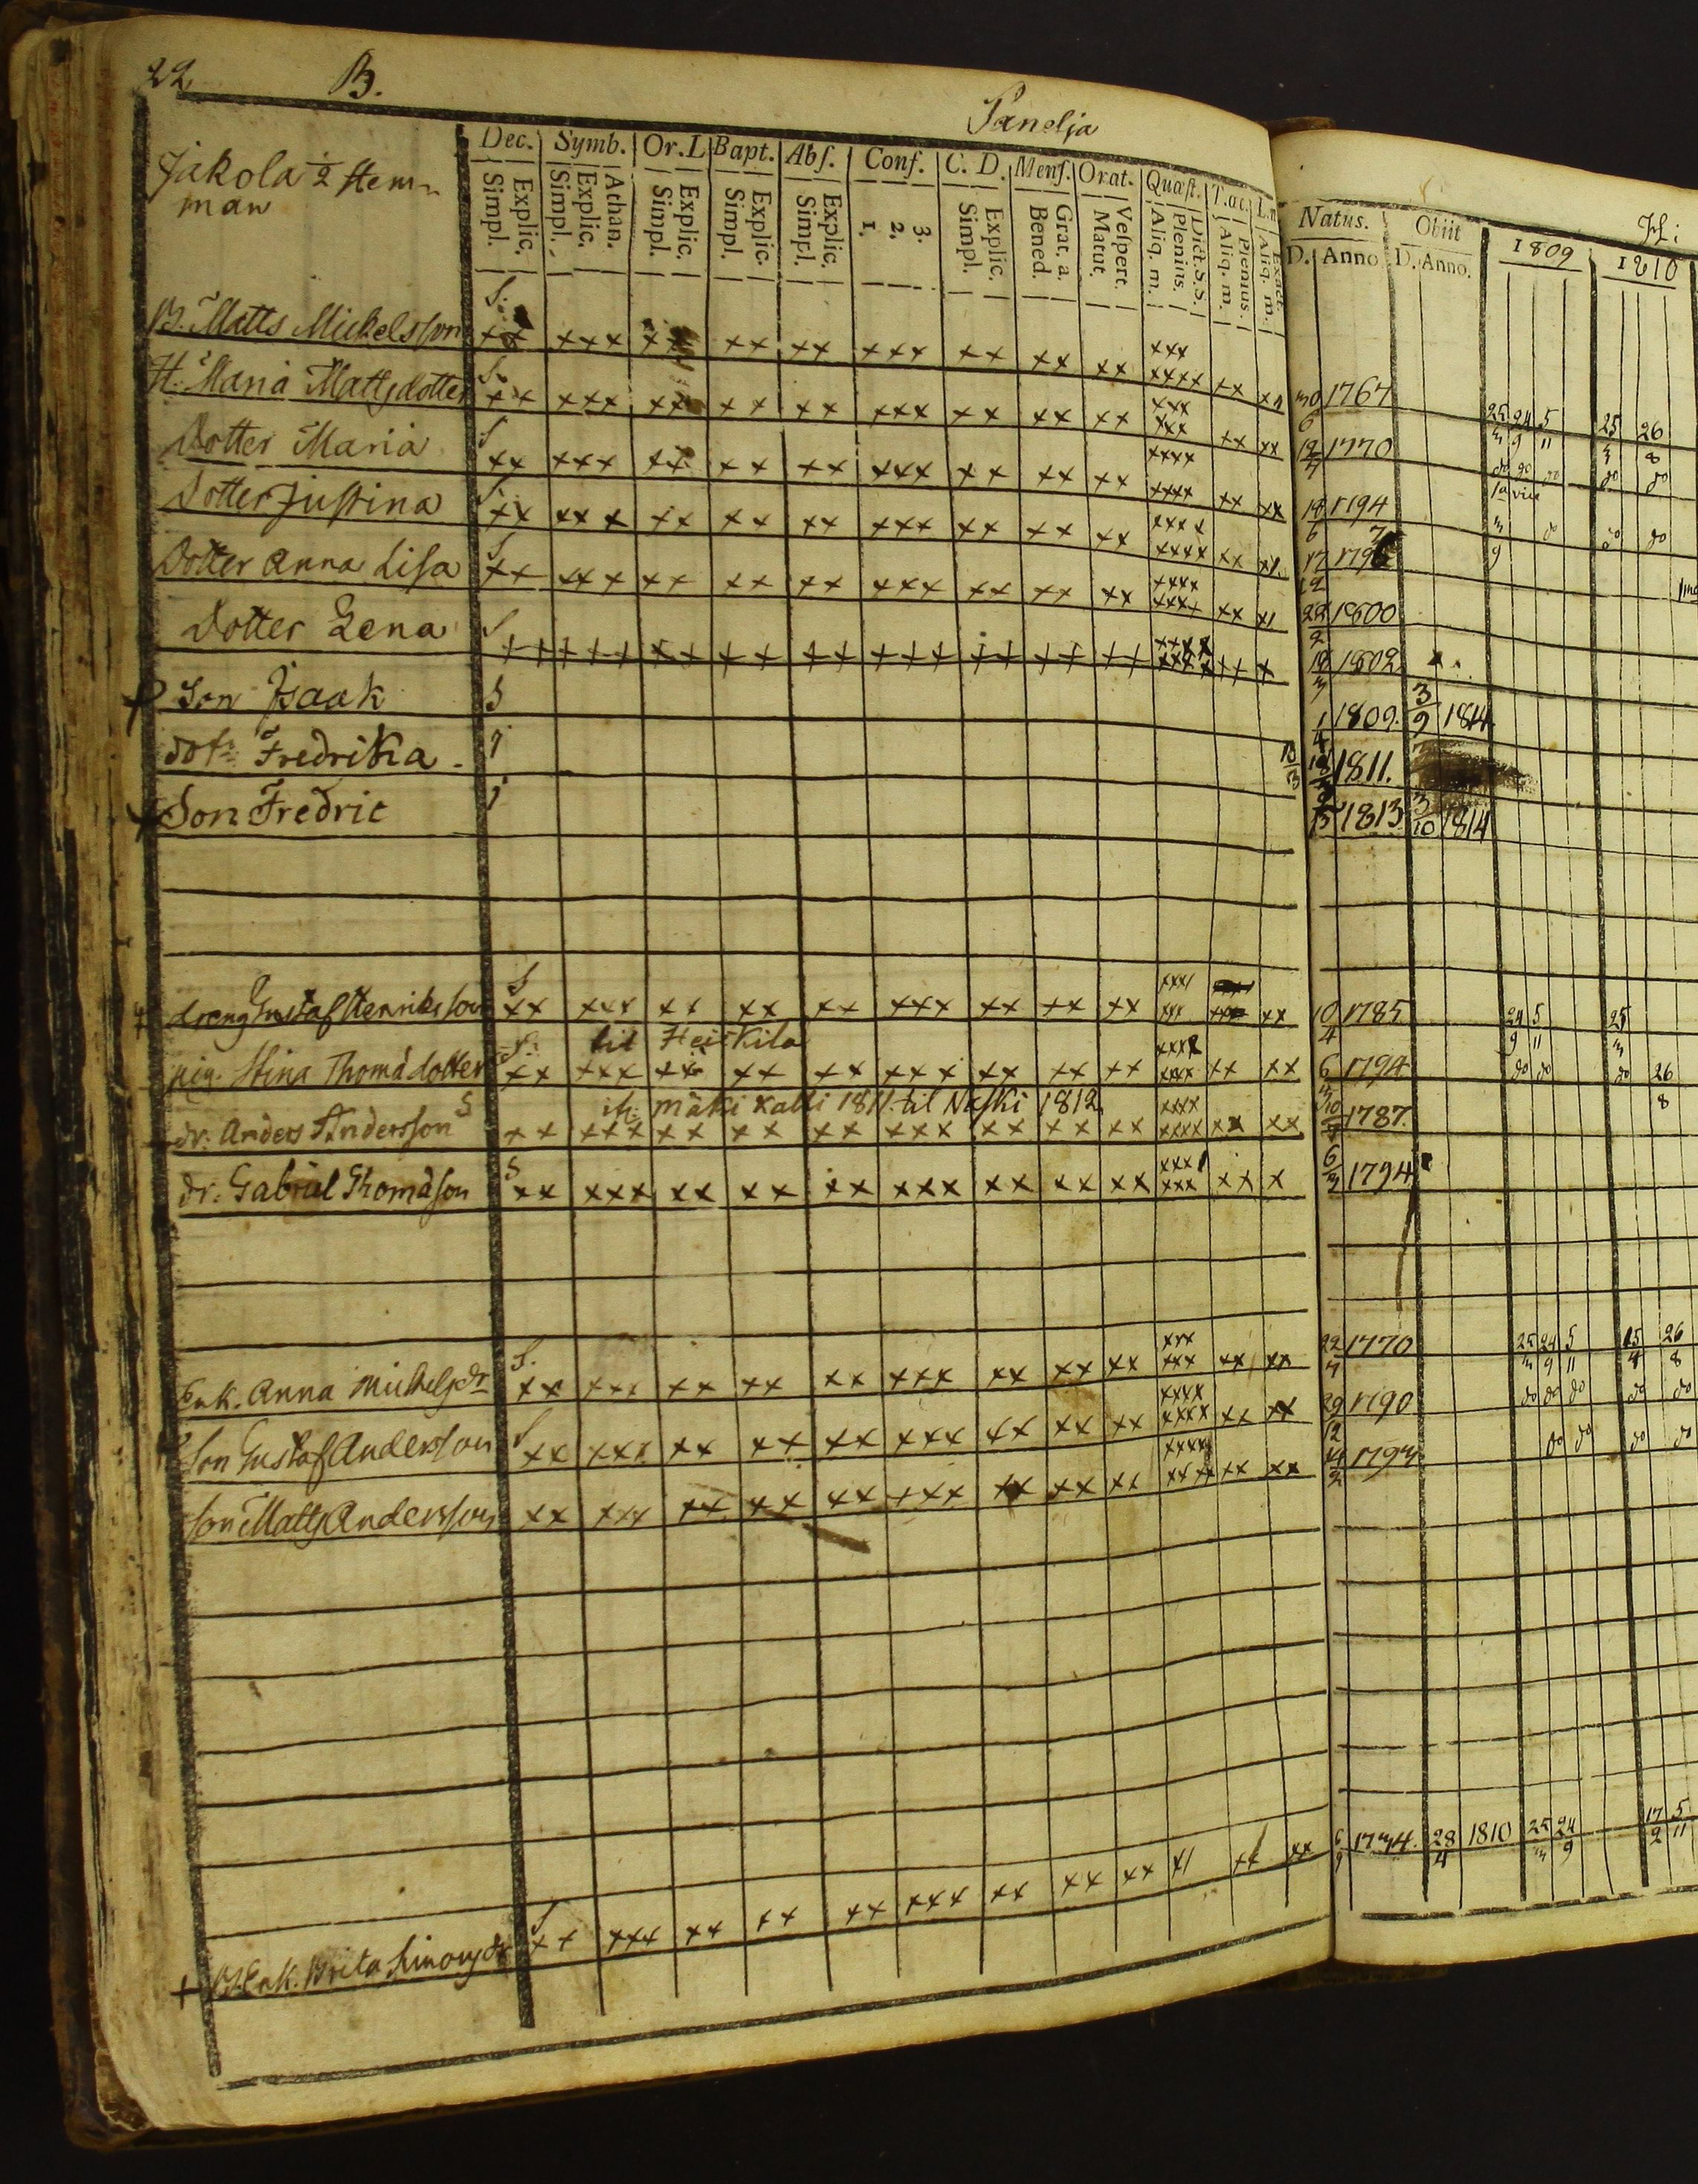 22 B. Panelja
Jakola 1/2 hem-
man
Dec. Symb. Or.L Bapt. Abſ. Conf. C. D. Menſ. Orat. Quæſt. T.ac. L.n
Explic. Simpl. Athan. Explic. Simpl. Explic. Simpl. Explic. Simpl. Explic. Simpl. 3. 2. 1. Explic. Simpl. Grat. a. Bened. Veſpert. Matut. Dict. S.S. Plenius. Aliq. m. Plenius. Aliq. m. Exact. Aliq. m.
Natus. Obiit 1809 1810
D. Anno D. Anno.
B. Matts Mickelsson S. xx xxx xx xx xx xxx xx xx xx xxx xxxx xx xx 30/6 1767 25/3 24/9 5/11 25/3 26/8
H. Maria Mattsdotter S. xx xxx xx xx xx xxx xx xx xx xxx xxx xx xx 12/7 1770 do do do do do
Dotter Maria S xx xxx xx xx xx xxx xx xx xx xxxx xxxx xx xx 18/6 1794 1a vice do do do
Dotter Justina S xx xxx xx xx xx xxx xx xx xx xxxx xxxx xx xx 17/12 179
Dotter Anna Lisa S xx xxx xx xx xx xxx xx xx xx xxxx xxxx xx xx 22/2 1800
Dotter Lena S xx xxx xx xx xx xxx xx xx xx xxxx xxxx xx x 18/3 1802
Son Isaak S 1/4 1809. 3/9 1814
dotr Fredrika. 18/3 1811.
Son Fredric 1813 3/10 1814
dreng Gustaf Henriksson S xx xxx xx xx xx xxx xx xx xx xxx xxx xx 10/4 1785 24/9 5/11 25/3
til Heickila
pig. Stina Thomadotter S. xx xxx xx xx xx xxx xx xx xx xxxx xxxx xx xx 6/3 1794 do do do 26/8
Mäki Kalli 1811 til Naski 1812
dr. Anders Andersson S xx xxx xx xx xx xxx xx xx xx xxxx xxxx xx xx 1787.
dr. Gabriel Thomasson S xx xxx xx xx xx xxx xx xx xx xxx xxx xx x 6/3 1794
Enk. Anna Michelsdr S. xx xxx xx xx xx xxx xx xx xx xxx xxx xx xx 22/7 1770 25/3 24/9 5/11 26/8
Son Gustaf Andersson S xx xxx xx xx xx xxx xx xx xx xxxx xxxx xx xx 29/12 1790 do do do do do
Son Matts Andersson xx xxx xx xx xx xxx xx xx xx xxxx xxxx xx xx 1793 do do do do
+ Enk. Brita Simonsdr S xx xxx xx xx xx xxx xx xx xx xx xx 6/9 1734. 28/4 1810 25/3 24/9 17/2 5/11